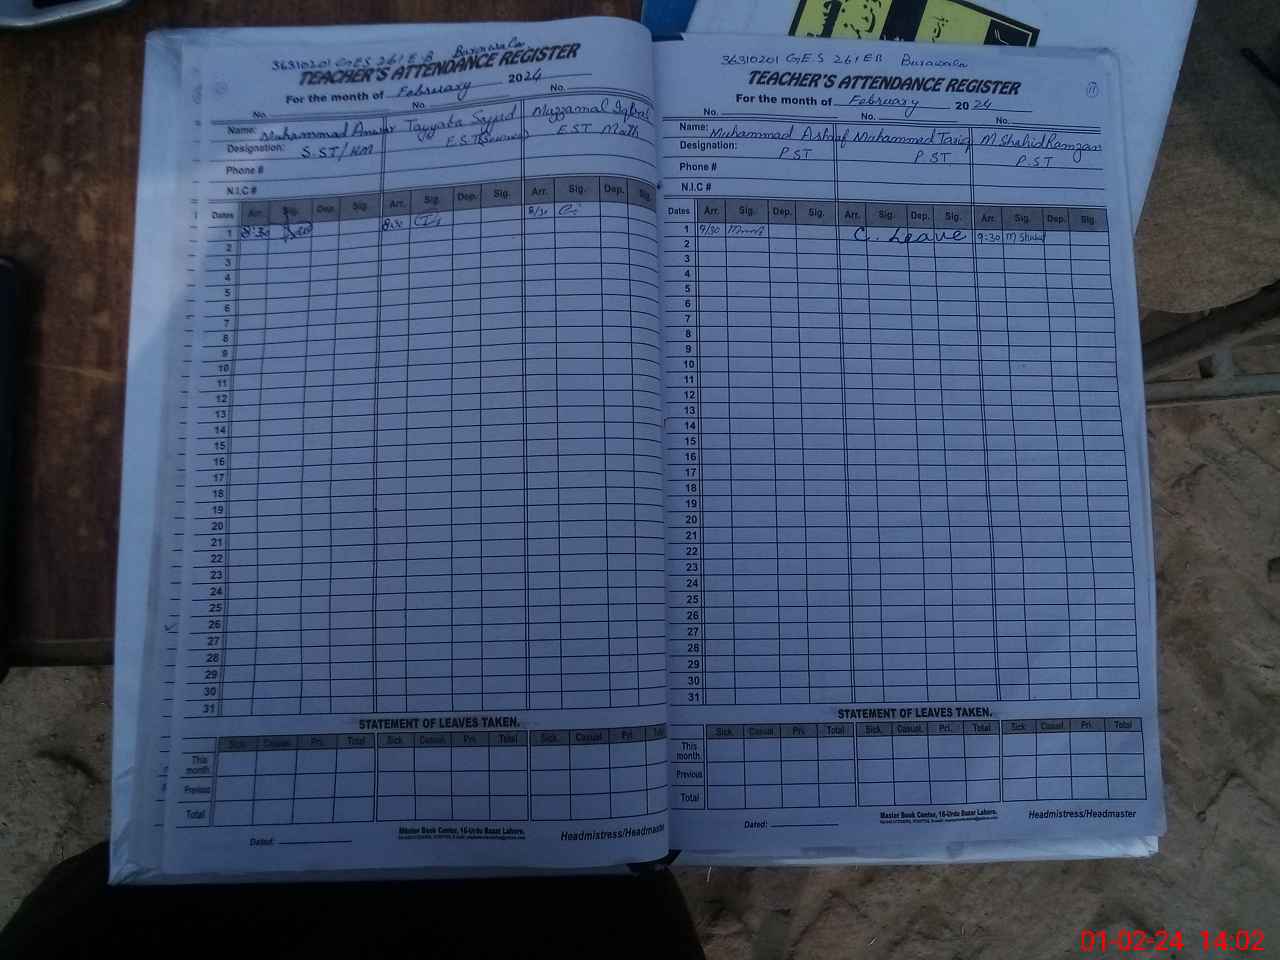 36310201 GES 261 E.B Burawala
TEACHER'S ATTENDANCE REGISTER
For the month of February 2024
No. No. No.
Name: Muhammad Anwar Tayyaba Sajjad Muzzamal Iqbal
Designation: S.ST/HM E.S.T E.S.T Math
Phone #
N.I.C #
Dates Arr. Sig. Dep. Sig. Arr. Sig. Dep. Sig. Arr. Sig. Dep. Sig.
1 8:30 8:30 8/30
2
3
4
5
6
7
8
9
10
11
12
13
14
15
16
17
18
19
20
21
22
23
24
25
26
27
28
29
30
31
STATEMENT OF LEAVES TAKEN.
Sick Casual Pri. Total Sick Casual Pri. Total Sick Casual Pri. Total
This month
Previous
Total
Master Book Center, 16-Urdu Bazar Lahore.
Dated: Headmistress/Headmaster
36310201 GES 261 EB Burawala
TEACHER'S ATTENDANCE REGISTER
11
For the month of February 2024
No. No. No.
Name: Muhammad Ashraf Muhammad Tariq M Shahid Ramzan
Designation: P.ST P.ST P.ST
Phone #
N.I.C #
Dates Arr. Sig. Dep. Sig. Arr. Sig. Dep. Sig. Arr. Sig. Dep. Sig.
1 9/30 C. Leave 9:30 M Shahid
2
3
4
5
6
7
8
9
10
11
12
13
14
15
16
17
18
19
20
21
22
23
24
25
26
27
28
29
30
31
STATEMENT OF LEAVES TAKEN.
Sick Casual Pri. Total Sick Casual Pri. Total Sick Casual Pri. Total
This month
Previous
Total
Master Book Center, 16-Urdu Bazar Lahore.
Dated: Headmistress/Headmaster
01-02-24 14:02